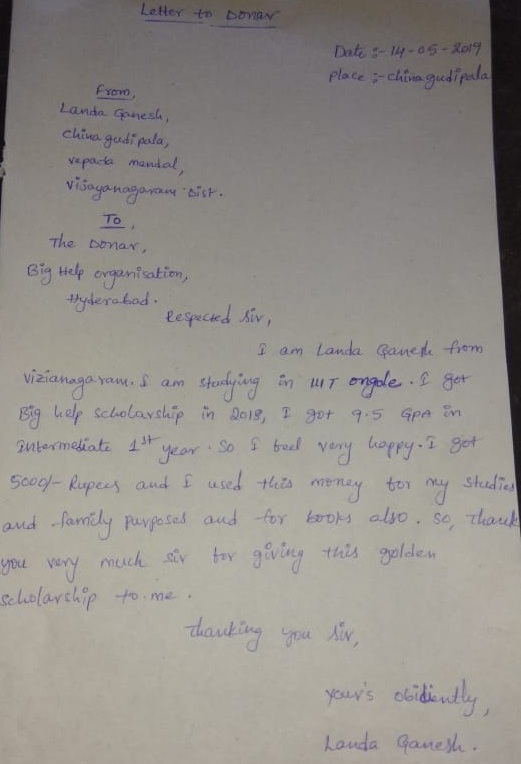 Letter to Donar
Date :- 14-05-2019
Place :- china gudipala
From,
Landa Ganesh,
china gudipala,
vepada mandal,
vijayanagaram Dist.
To,
The Donar,
Big Help organisation,
Hyderabad.
Respected Sir,
I am Landa Ganesh from
vizianagaram. I am studying in IIIT ongole. I got
Big help scholarship in 2018, I got 9.5 GPA in
Intermediate 1st year. So I feel very happy. I got
5000/- Rupees and I used this money for my studies
and family purposes and for books also. So, thank
you very much sir for giving this golden
scholarship to me.
Thanking you Sir,
your's obidiently,
Landa Ganesh.